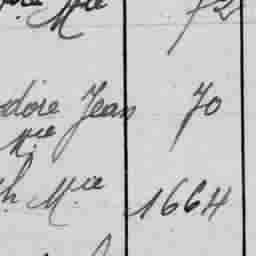 Mce 72
dore Jean 70
Mce
h. Mce 1664